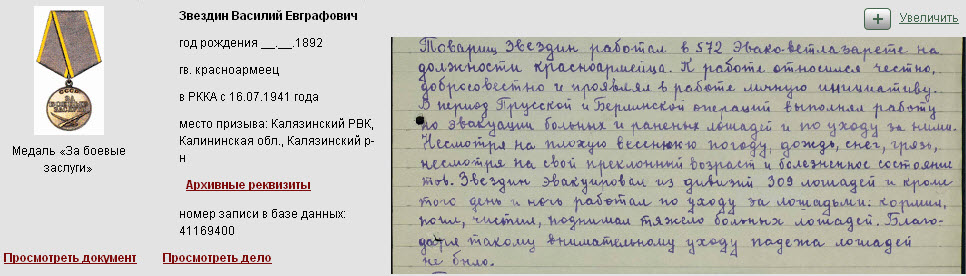 Звездин Василий Евграфович
год рождения __.__.1892
гв. красноармеец
в РККА с 16.07.1941 года
место призыва: Калязинский РВК,
Калининская обл., Калязинский р-
н
Архивные реквизиты
номер записи в базе данных:
41169400
СССР
ЗА
БОЕВЫЕ
ЗАСЛУГИ
Медаль «За боевые
заслуги»
Просмотреть документ
Просмотреть дело
Увеличить
Товарищ Звездин работал в 572 Эваковетлазарете на
должности красноармейца. К работе относился честно,
добросовестно и проявлял в работе личную инициативу.
В период Прусской и Берлинской операций выполнял работу
по эвакуации больных и раненых лошадей и по уходу за ними.
Несмотря на плохую весеннюю погоду, дождь, снег, грязь,
несмотря на свой преклонный возраст и болезненное состояние
тов. Звездин эвакуировал из дивизий 309 лошадей и кроме
того день и ночь работал по уходу за лошадьми: кормил,
поил, чистил, поднимал тяжело больных лошадей. Благо-
даря такому внимательному уходу падежа лошадей
не было.